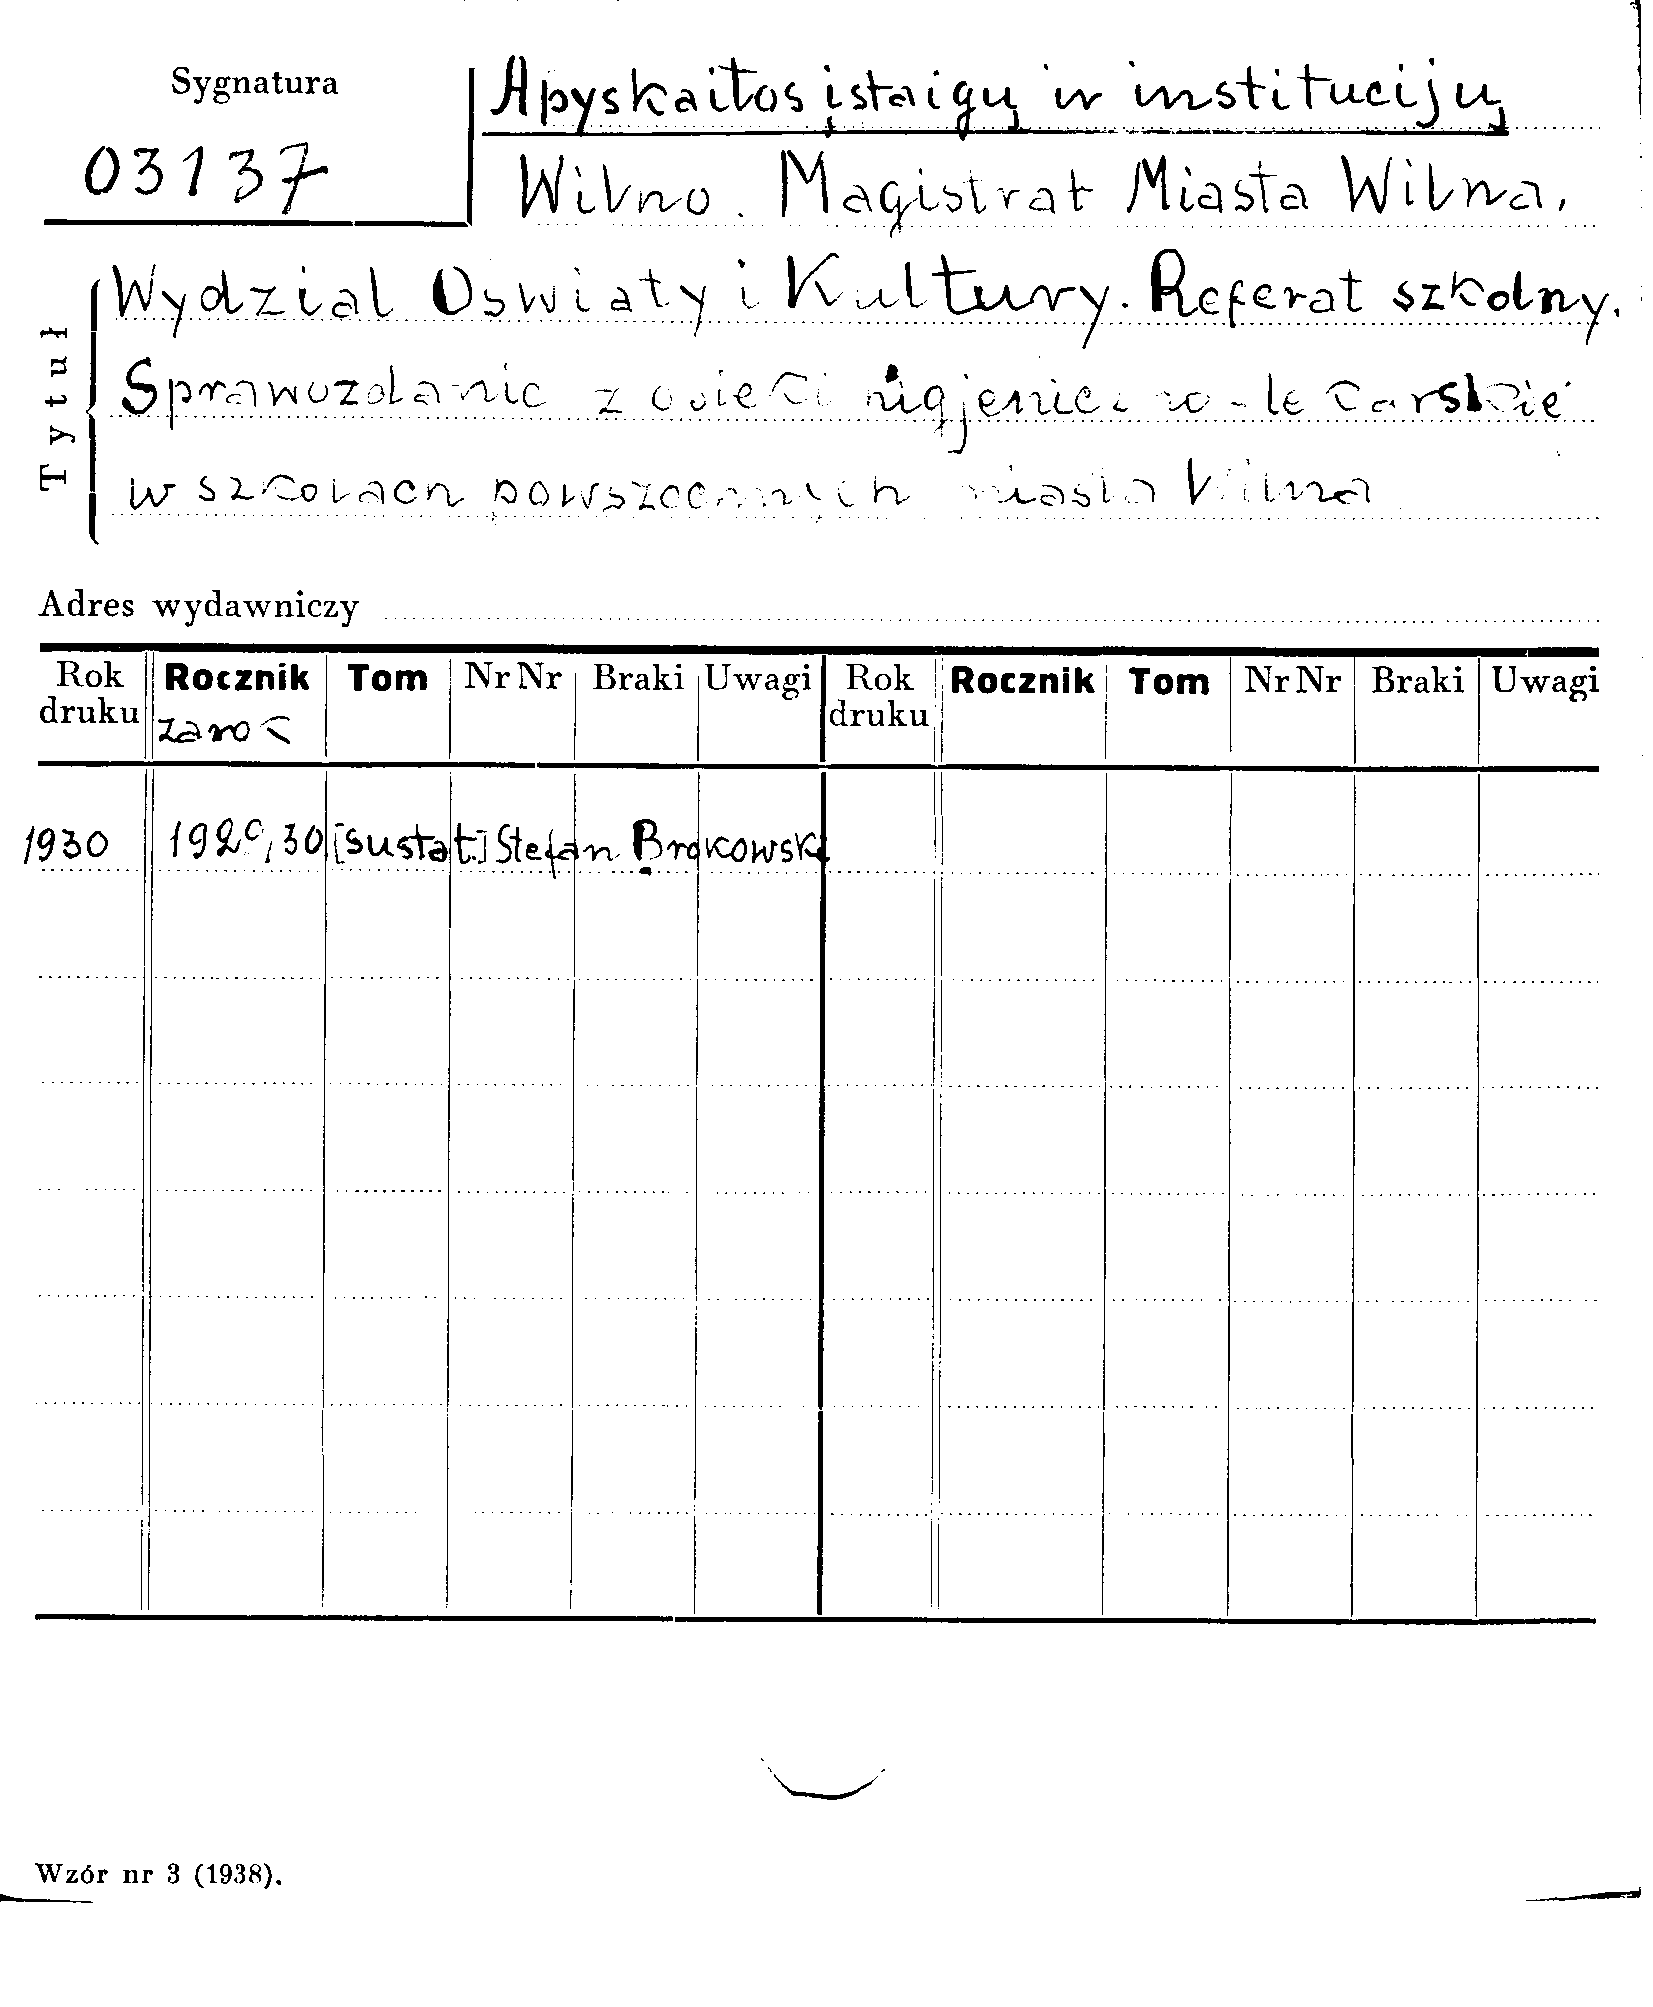 Sygnatura
03137
Apyskaitos įstaigų ir institucijų
Wilno. Magistrat Miasta Wilna,
Tytuł
Wydzial Oswiaty i Kultury. Referat szkolny.
Sprawozdanie z opieki higjeniczno-lekarskiej
w szkolach powszechnych miasta Wilna
Adres wydawniczy
Rok druku Rocznik Tom Nr Nr Braki Uwagi Rok druku Rocznik Tom Nr Nr Braki Uwagi
1930 1929/30 [sustat.] Stefan Brokowski
Wzór nr 3 (1938).